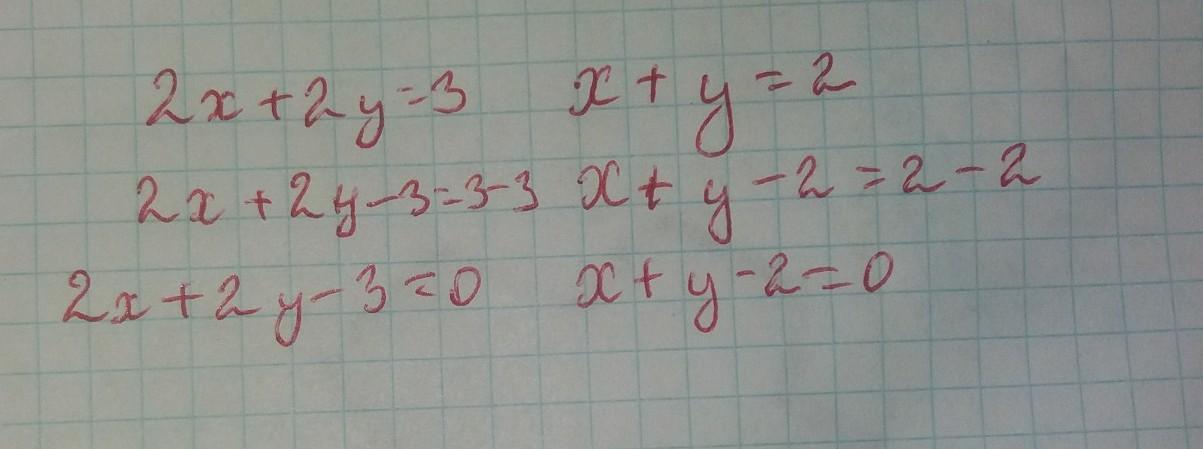 2x+2y=3 x+y=2
2x+2y-3=3-3 x+y-2=2-2
2x+2y-3=0 x+y-2=0